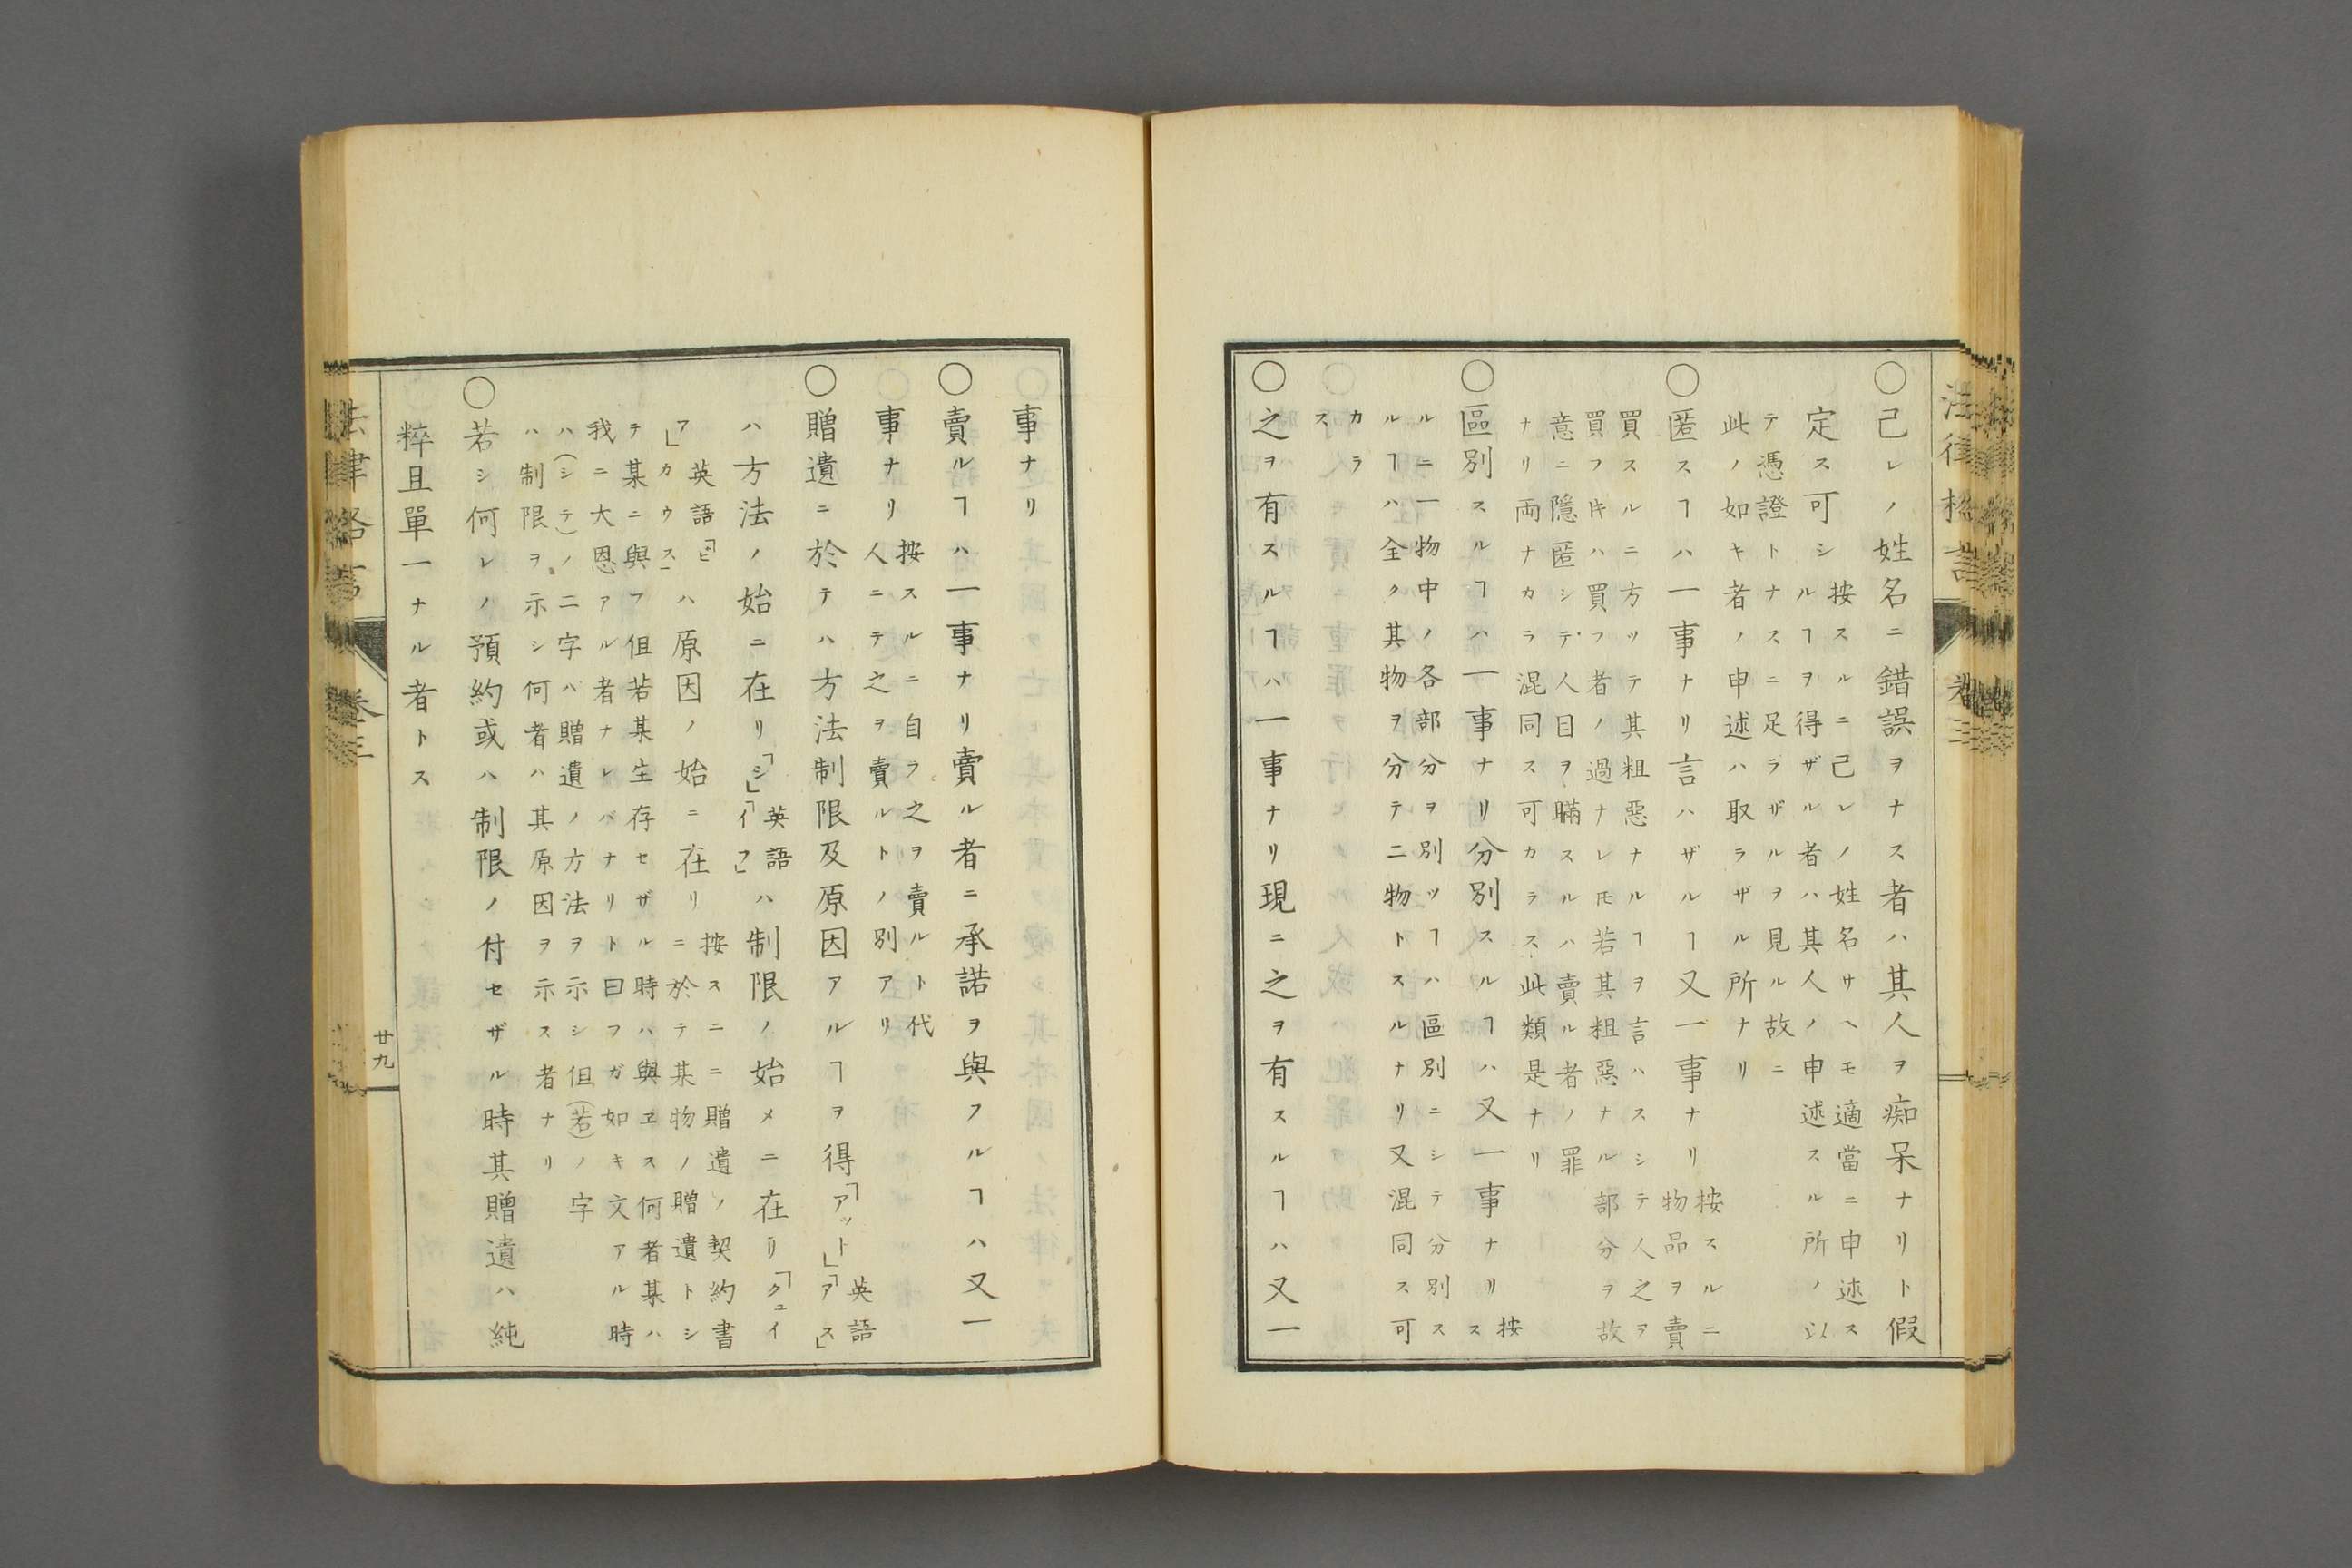 法律格言　卷三
○己レノ姓名ニ錯誤ヲナス者ハ其人ヲ痴呆ナリト假
定ス可シ
按スルニ己レノ姓名サヘモ適當ニ申述ス
ルヿヲ得ザル者ハ其人ノ申述スル所ノ以
テ憑證トナスニ足ラザルヲ見ル故ニ
此ノ如キ者ノ申述ハ取ラザル所ナリ
○匿スヿハ一事ナリ言ハザルヿ又一事ナリ
按スルニ
物品ヲ賣
買スルニ方ッテ其粗惡ナルヿヲ言ハスシテ人之ヲ
買フ𪜈ハ買フ者ノ過ナレ𪜈若其粗惡ナル部分ヲ故
意ニ隱匿シテ人目ヲ瞞スルハ賣ル者ノ罪
ナリ両ナカラ混同ス可カラス此類是ナリ
○區別スルヿハ一事ナリ分別スルヿハ又一事ナリ
按
ス
ルニ一物中ノ各部分ヲ別ツヿハ區別ニシテ分別ス
ルヿハ全ク其物ヲ分テ二物トスルナリ又混同ス可
カラ
ス
○之ヲ有スルヿハ一事ナリ現ニ之ヲ有スルヿハ又一
事ナリ
○賣ルヿハ一事ナリ賣ル者ニ承諾ヲ與フルヿハ又一
事ナリ
按スルニ自ラ之ヲ賣ルト代
人ニテ之ヲ賣ルトノ別アリ
○贈遺ニ於テハ方法制限及原因アルヿヲ得「アット」
英語
「アス」
ハ方法ノ始ニ在リ「シ」
英語
「イフ」
ハ制限ノ始メニ在リ「クユイ
ア」
英語「ビ
カウス」
ハ原因ノ始ニ在リ
按スニニ贈遺ノ契約書
ニ於テ某物ノ贈遺トシ
テ某ニ與フ但若某生存セザル時ハ與ヱス何者某ハ
我ニ大恩アル者ナレバナリト曰フガ如キ文アル時
ハ(シテ)ノ二字ハ贈遺ノ方法ヲ示シ但(若)ノ字
ハ制限ヲ示シ何者ハ其原因ヲ示ス者ナリ
○若シ何レノ預約或ハ制限ノ付セザル時其贈遺ハ純
粹且單一ナル者トス
法律格言　卷三　廿九